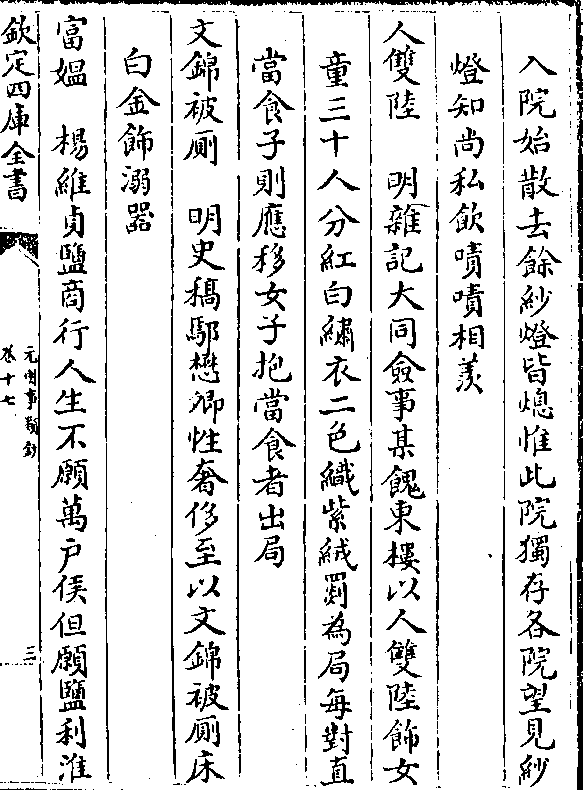 入院始散去餘紗燈皆熄惟此院獨存各院望見紗
燈知尚私飲嘖嘖相羨
人雙陸　明雜記大同僉事某餽東樓以人雙陸飾女
童三十人分紅白繡衣二色織紫絨罽為局每對直
當食子則應移女子抱當食者出局
文錦被厠　明史稿鄢懋卿性奢侈至以文錦被厠床
白金飾溺器
富媼　楊維貞鹽商行人生不願萬戶侯但願鹽利淮
欽定四庫全書
元明事類鈔
卷十七
三